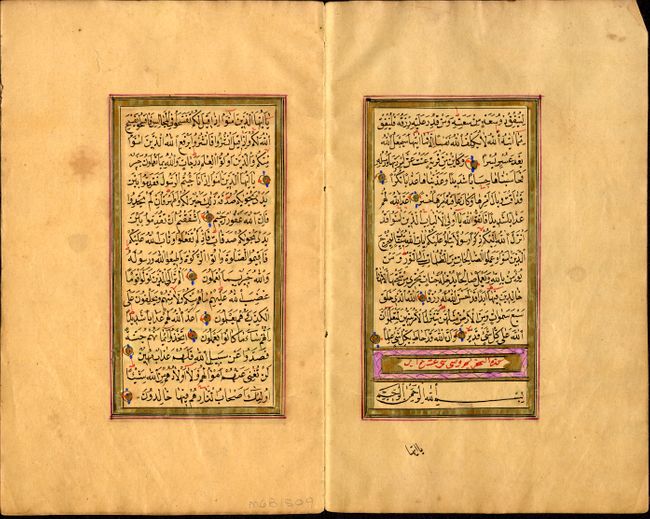 لينفق ذو سعة من سعته ومن قدر عليه رزقه فلينفق
مما آتاه الله لا يكلف الله نفسا إلا ما آتاها سيجعل الله
بعد عسر يسرا وكأين من قرية عتت عن أمر ربها ورسله
فحاسبناها حسابا شديدا وعذبناها عذابا نكرا
فذاقت وبال أمرها وكان عاقبة أمرها خسرا أعد الله لهم
عذابا شديدا فاتقوا الله يا أولي الألباب الذين آمنوا قد
أنزل الله إليكم ذكرا رسولا يتلوا عليكم آيات الله مبينات ليخرج
الذين آمنوا وعملوا الصالحات من الظلمات إلى النور ومن
يؤمن بالله ويعمل صالحا يدخله جنات تجري من تحتها الأنهار
خالدين فيها أبدا قد أحسن الله له رزقا الله الذي خلق
سبع سموات ومن الأرض مثلهن يتنزل الأمر بينهن لتعلموا أن
الله على كل شيء قدير وأن الله قد أحاط بكل شيء علما
بسم الله الرحمن الرحيم
يا أيها
يا أيها الذين آمنوا إذا قيل لكم تفسحوا في المجالس فافسحوا يفسح
الله لكم وإذا قيل انشزوا فانشزوا يرفع الله الذين آمنوا
منكم والذين أوتوا العلم درجات والله بما تعملون خبير
يا أيها الذين آمنوا إذا ناجيتم الرسول فقدموا بين
يدي نجواكم صدقة ذلك خير لكم وأطهر فإن لم تجدوا
فإن الله غفور رحيم أأشفقتم أن تقدموا بين
يدي نجواكم صدقات فإذ لم تفعلوا وتاب الله عليكم
فأقيموا الصلوة وآتوا الزكوة وأطيعوا الله ورسوله
والله خبير بما تعملون ألم تر إلى الذين تولوا قوما
غضب الله عليهم ما هم منكم ولا منهم ويحلفون على
الكذب وهم يعلمون أعد الله لهم عذابا شديدا
إنهم ساء ما كانوا يعملون اتخذوا أيمانهم جنة
فصدوا عن سبيل الله فلهم عذاب مهين
لن تغني عنهم أموالهم ولا أولادهم من الله شيئا
أولئك أصحاب النار هم فيها خالدون